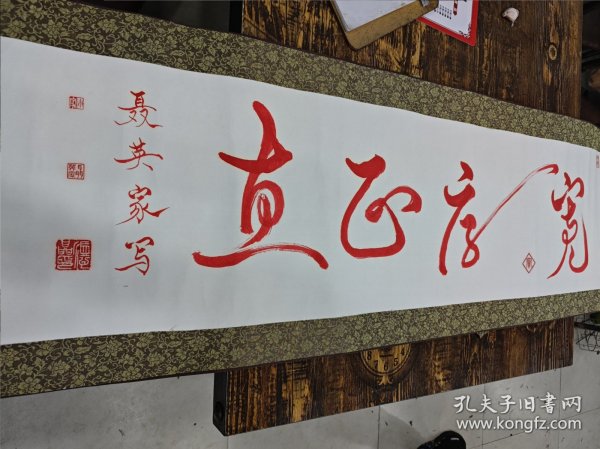 宽厚正直
聂英家写
孔夫子旧书网
www.kongfz.com